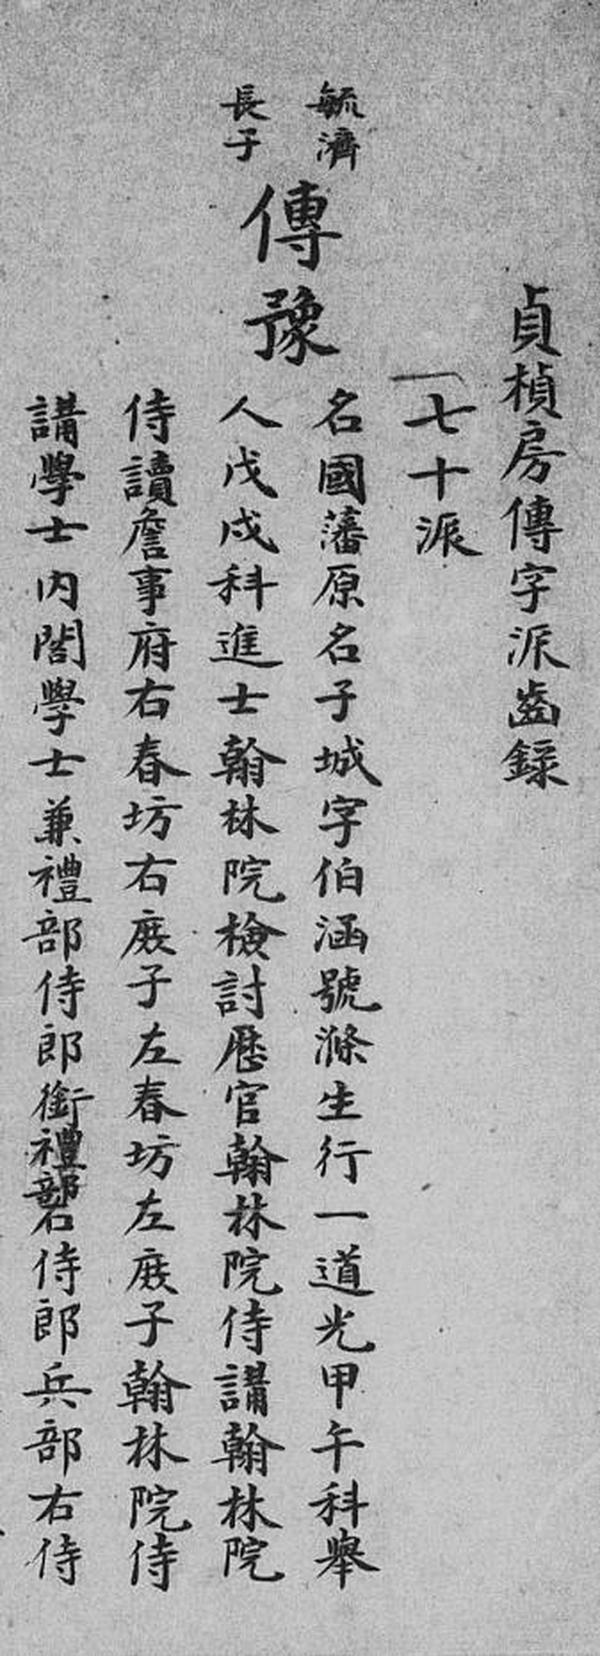 貞楨房傳字派齒錄
七十派
毓濟
長子
傳豫
名國藩原名子城字伯涵號滌生行一道光甲午科舉
人戊戌科進士翰林院檢討歷官翰林院侍講翰林院
侍讀詹事府右春坊右庶子左春坊左庶子翰林院侍
講學士內閣學士兼禮部侍郎銜禮部右侍郎兵部右侍